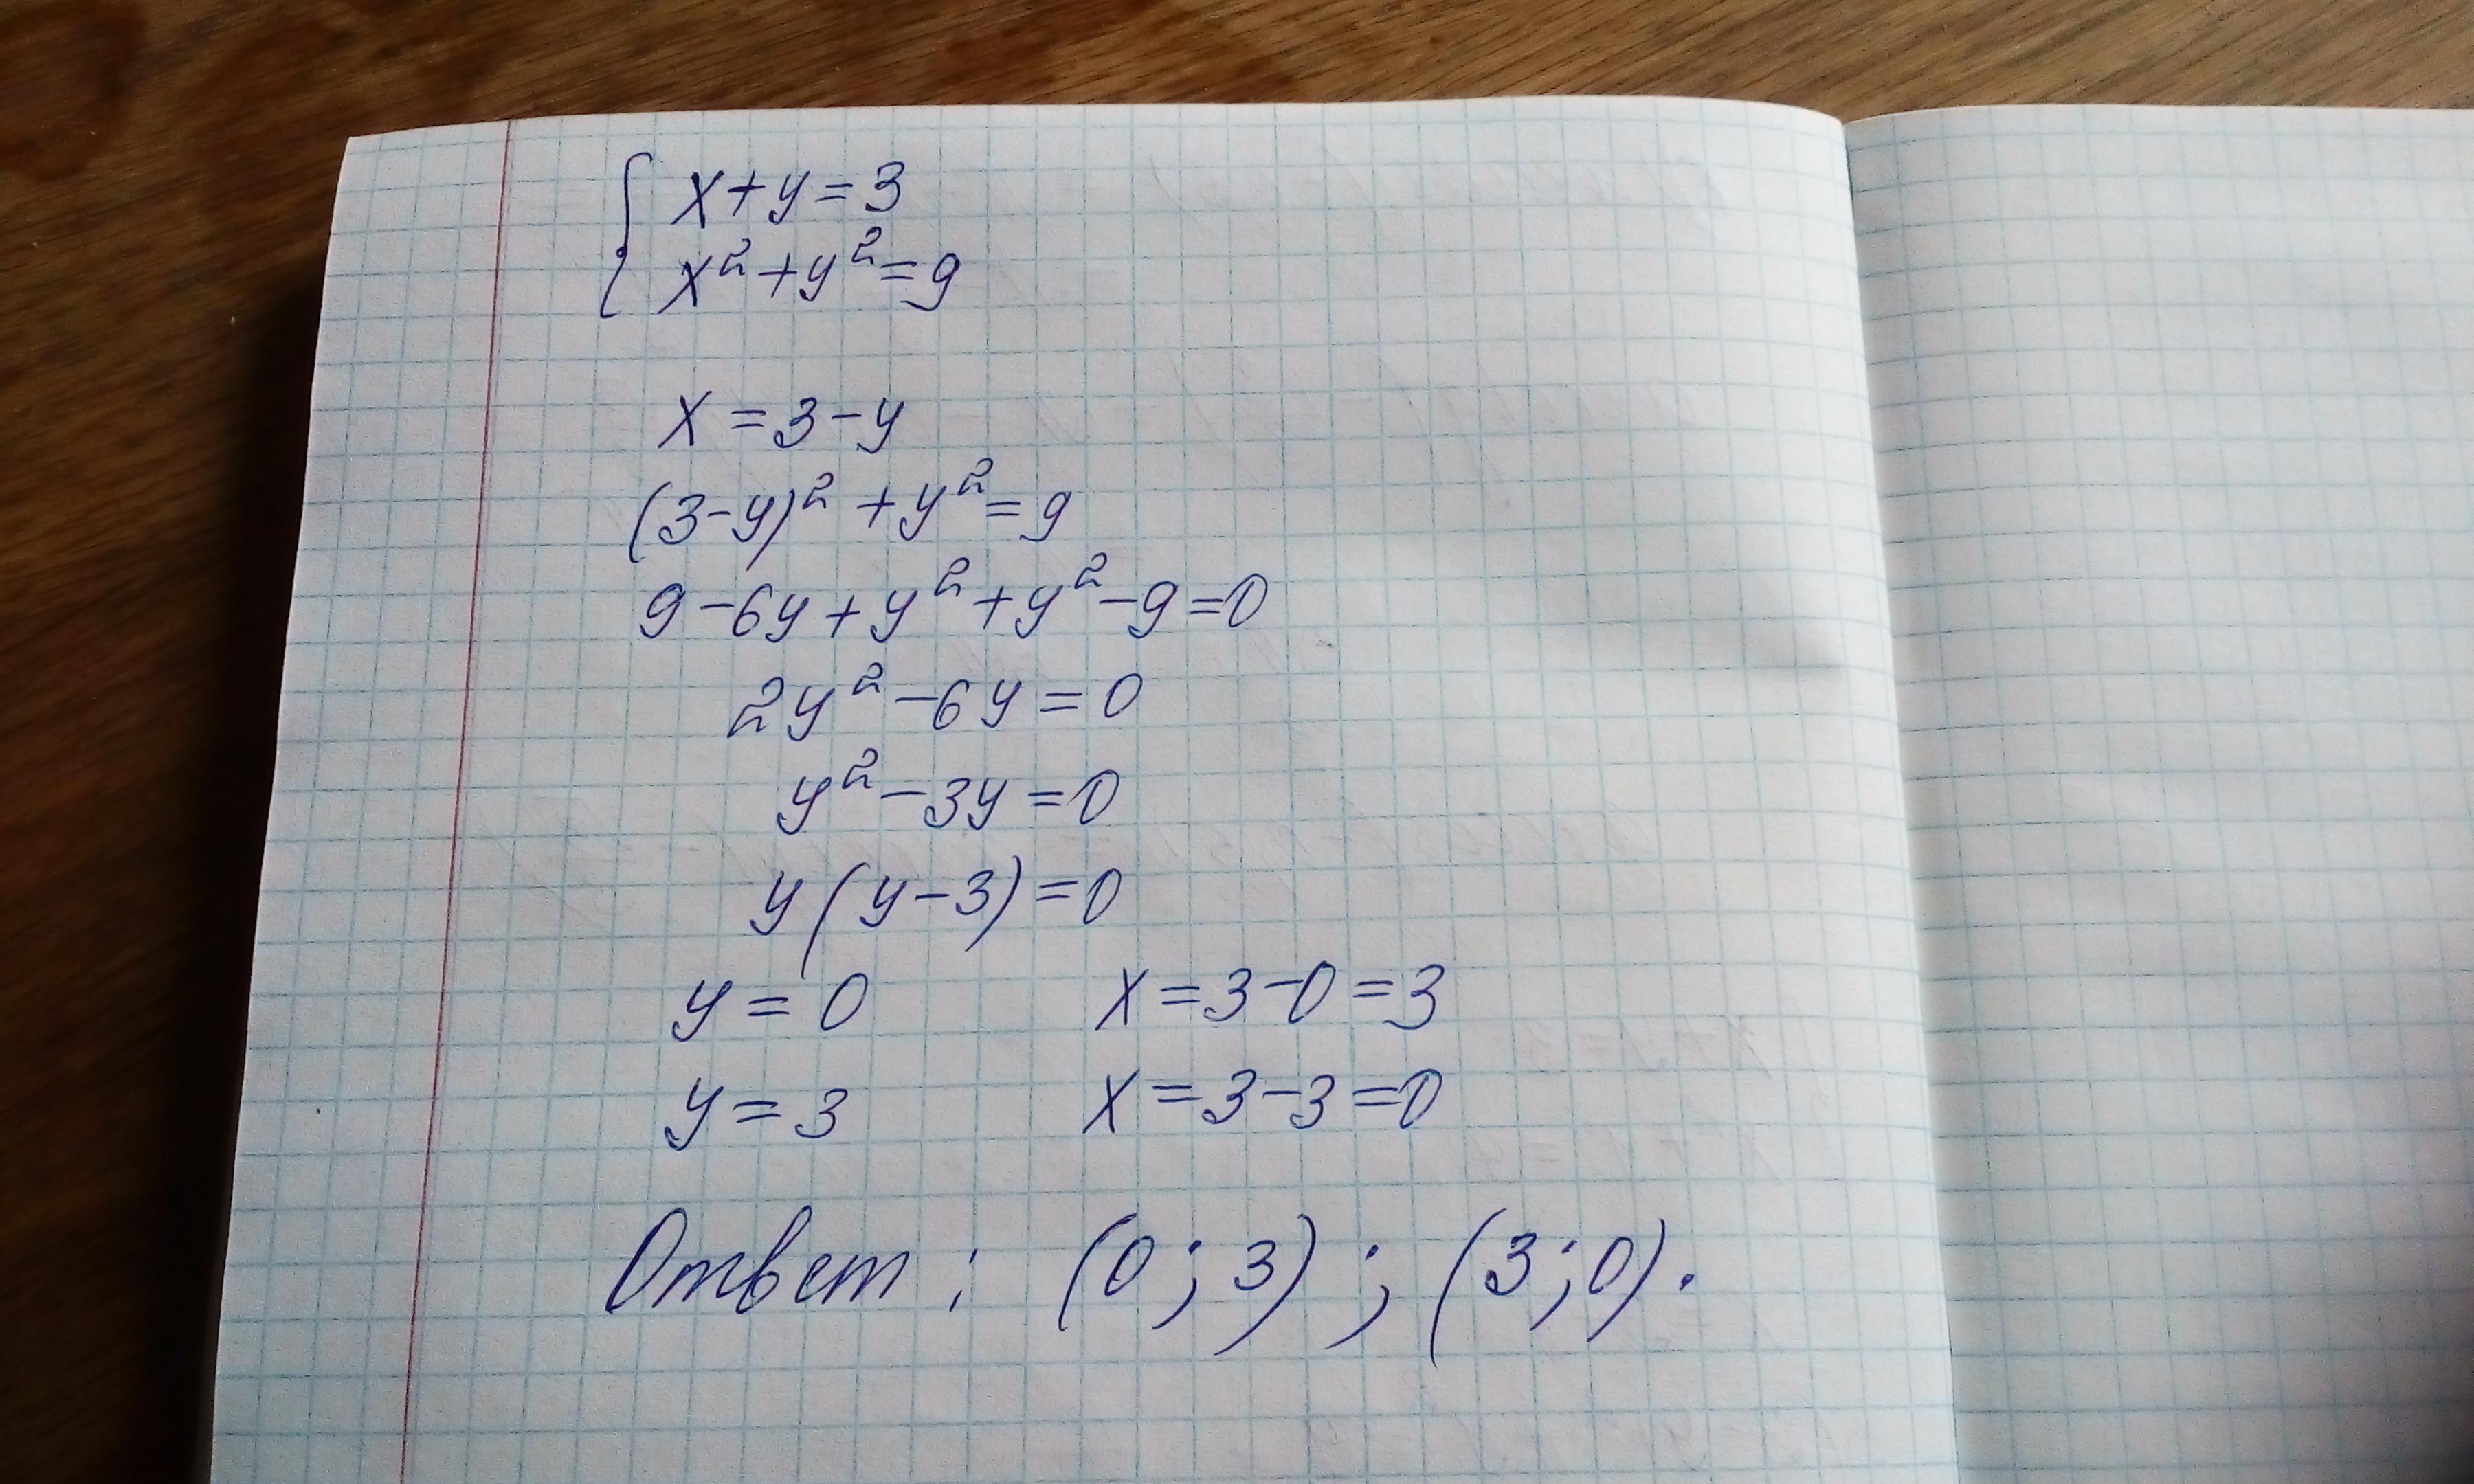 { x+y=3
x²+y²=9
x=3-y
(3-y)²+y²=9
9-6y+y²+y²-9=0
2y²-6y=0
y²-3y=0
y(y-3)=0
y=0 x=3-0=3
y=3 x=3-3=0
Ответ: (0;3);(3;0).